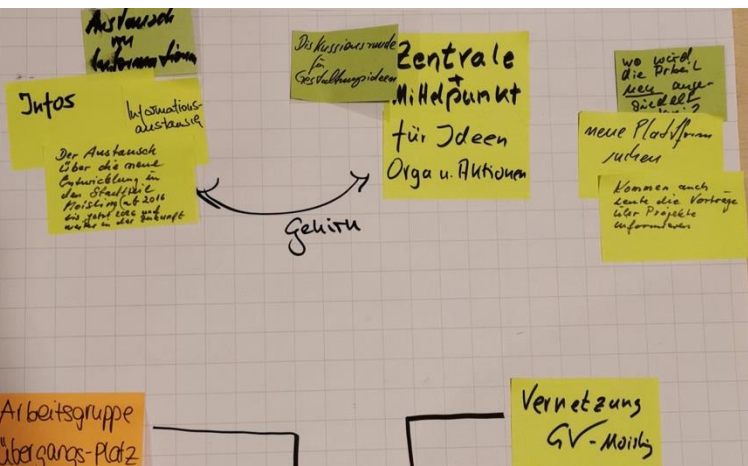 Austausch
zu
Informationen
Infos
Informations-
austausch
Der Austausch
über die neue
Entwicklung in
den Stadtteil
Moisling (ab 2016
bis jetzt 2026 und
weiter in der Zukunft
Diskussionsrunde
für
Gestaltungsideen
Zentrale
+
Mittelpunkt
für Ideen
Orga u. Aktionen
Gehirn
wo wird
die Arbeit
neu ange-
siedelt
neue Plattform
suchen
Kommen auch
Leute die Vorträge
über Projekte
informieren
Arbeitsgruppe
Übergangs-Platz
Vernetzung
GV-Moisling